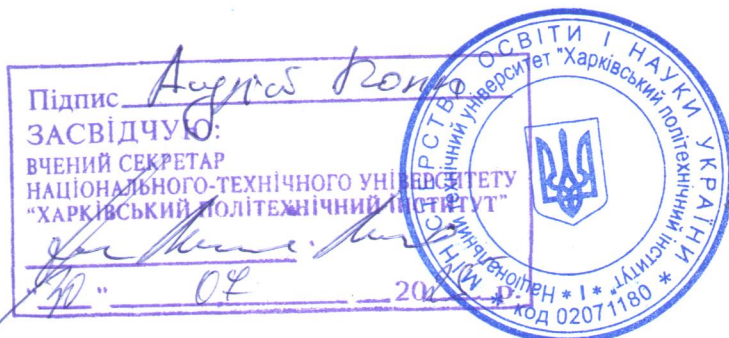 Підпис Андрій Копп
ЗАСВІДЧУЮ:
ВЧЕНИЙ СЕКРЕТАР
НАЦІОНАЛЬНОГО-ТЕХНІЧНОГО УНІВЕРСИТЕТУ
"ХАРКІВСЬКИЙ ПОЛІТЕХНІЧНИЙ ІНСТИТУТ"
" 30 " 07 20 р.
МІНІСТЕРСТВО ОСВІТИ І НАУКИ УКРАЇНИ
Національний технічний університет "Харківський політехнічний інститут"
* І *
* код 02071180 *